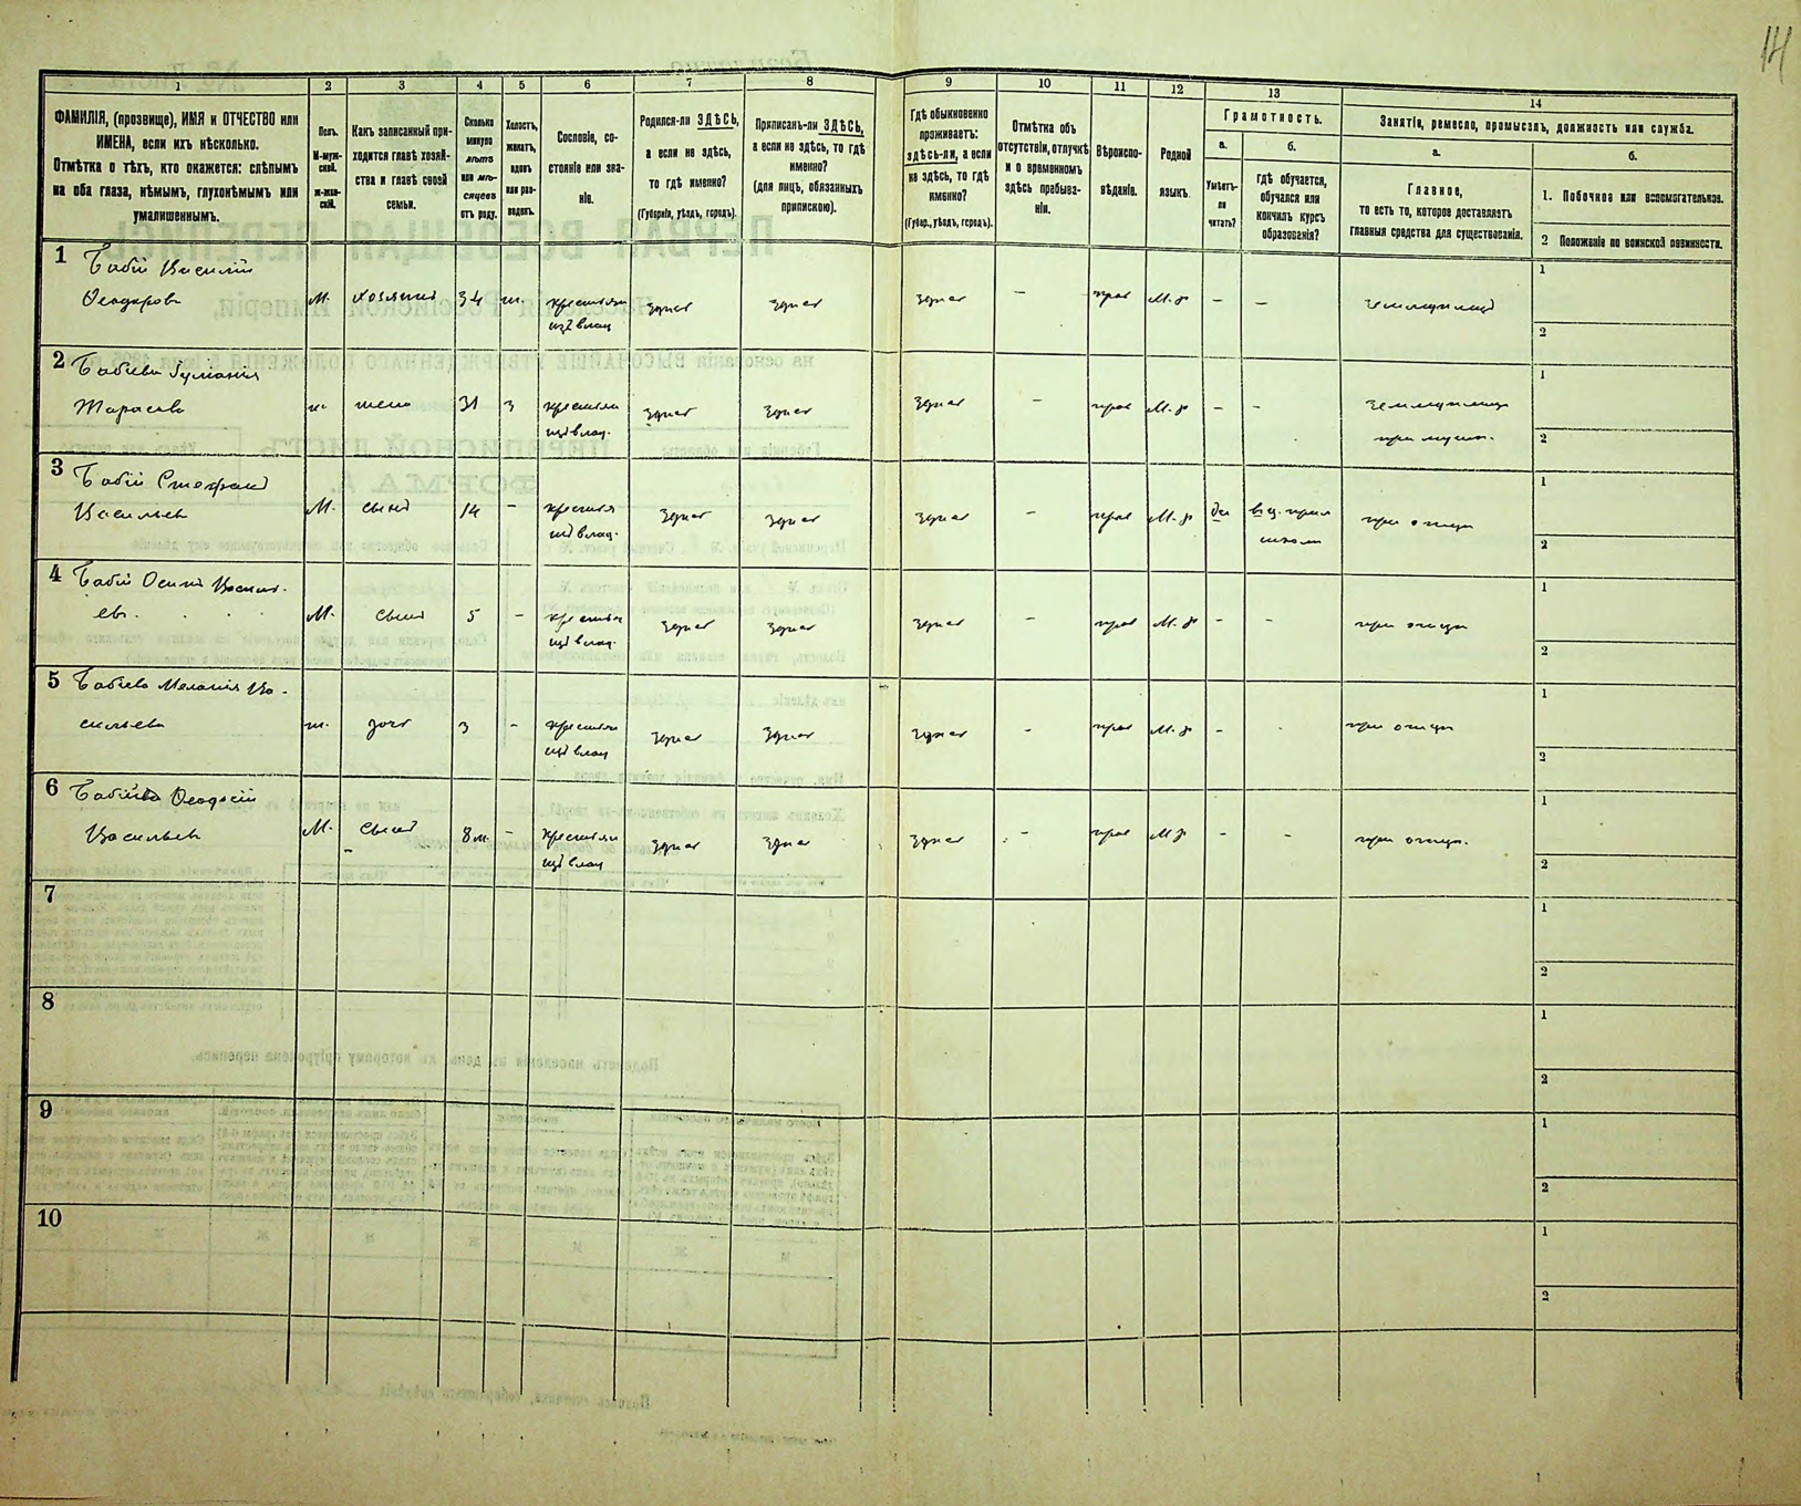 14
1
2
3
4
5
6
7
8
9
10
11
12
13
14
ФАМИЛІЯ, (прозвище), ИМЯ и ОТЧЕСТВО или
ИМЕНА, если ихъ нѣсколько.
Отмѣтка о тѣхъ, кто окажется: слѣпымъ
на оба глаза, нѣмымъ, глухонѣмымъ или
умалишеннымъ.
Полъ.
М-муж-
ской.
ж-жен-
скій.
Какъ записанный при-
ходится главѣ хозяй-
ства и главѣ своей
семьи.
Сколько
минуло
лѣтъ
или мѣ-
сяцевъ
отъ роду.
Холостъ,
женатъ,
вдовъ
или раз-
веденъ.
Сословіе, со-
стояніе или зва-
ніе.
Родился-ли ЗДѢСЬ,
а если не здѣсь,
то гдѣ именно?
(Губернія, уѣздъ, городъ).
Приписанъ-ли ЗДѢСЬ,
а если не здѣсь, то гдѣ
именно?
(для лицъ, обязанныхъ
припиской).
Гдѣ обыкновенно
проживаетъ:
здѣсь-ли, а если
не здѣсь, то гдѣ
именно?
(Губер., уѣздъ, городъ).
Отмѣтка объ
отсутствіи, отлучкѣ
и о временномъ
здѣсь пребыва-
ніи.
Вѣроиспо-
вѣданіе.
Родной
языкъ.
Грамотность.
а.
б.
Умѣетъ-
ли
читать?
гдѣ обучается,
обучался или
кончилъ курсъ
образованія?
Занятіе, ремесло, промыселъ, должность или служба.
а.
б.
Главное,
то есть то, которое доставляетъ
главныя средства для существованія.
1. Побочное или вспомогательное.
2 Положеніе по воинской повинности.
1 Бабій Василій
Ѳеодоровъ М. хозяинъ 34 ж. крестьян здѣсь здѣсь здѣсь — прав М. р — — земледѣлец
изъ влад
1
2
2 Бабіева
Тарасова ж. жена 31 з крестьян здѣсь здѣсь здѣсь — прав М. р — —
изъ влад. при муж.
1
2
3 Бабій Стефанъ
Васильев М. сынъ 14 — крестьян здѣсь здѣсь здѣсь — прав М. р да в ц. прих при отцѣ
изъ влад. школѣ
1
2
4 Бабій Осипъ Василь-
евъ. М. сынъ 5 — крестьян здѣсь здѣсь здѣсь — прав М. р — — при отцѣ
изъ влад.
1
2
5 Бабіева Меланія Ва-
сильева ж. дочь 3 — крестьян здѣсь здѣсь здѣсь — прав М. р — при отцѣ
изъ влад
1
2
6 Ѳеодосій
Васильев М. сынъ 8 м. — крестьян здѣсь здѣсь здѣсь — прав М р — — при отцѣ.
изъ влад
1
2
7
1
2
8
1
2
9
1
2
10
1
2